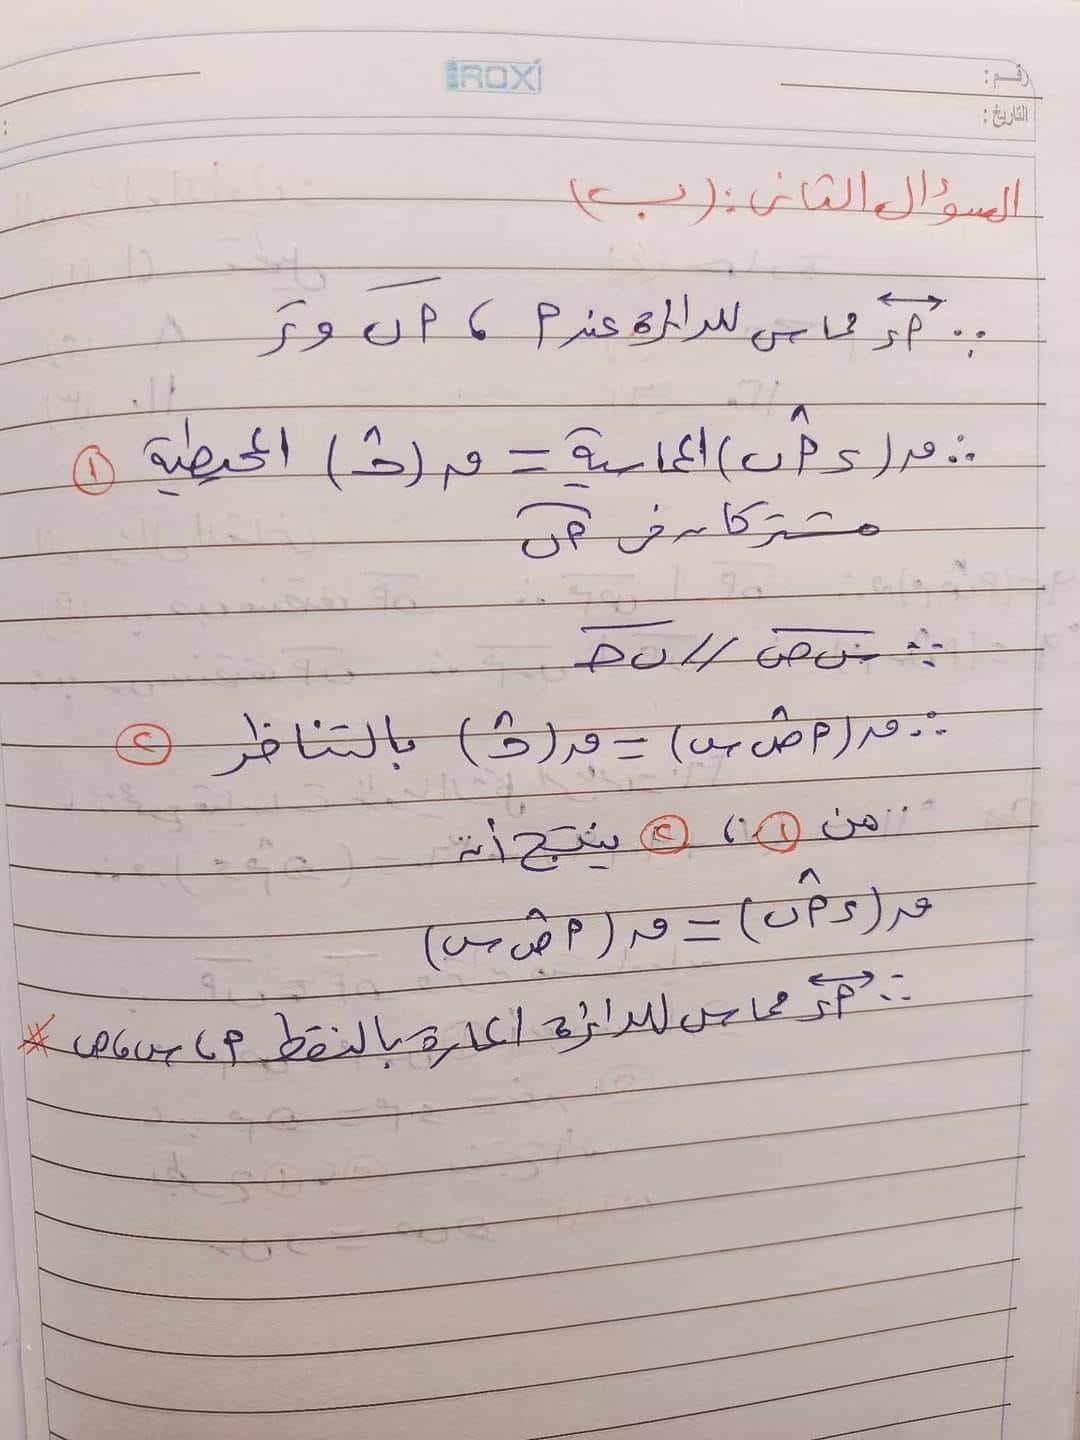 ROXI
رقم :
التاريخ :
السؤال الثاني : (ب)
∵ أء مماس للدائرة عند أ ، أب وتر
∴ ق(ء أ ب) المماسية = ق(جـ) المحيطية ①
مشتركان في أب
∵ س ص // ب جـ
∴ ق(أ ص س) = ق(جـ) بالتناظر ②
من ① ، ② ينتج أن
ق(ء أ ب) = ق(أ ص س)
∴ أء مماس للدائرة المارة بالنقط أ ، س ، ص